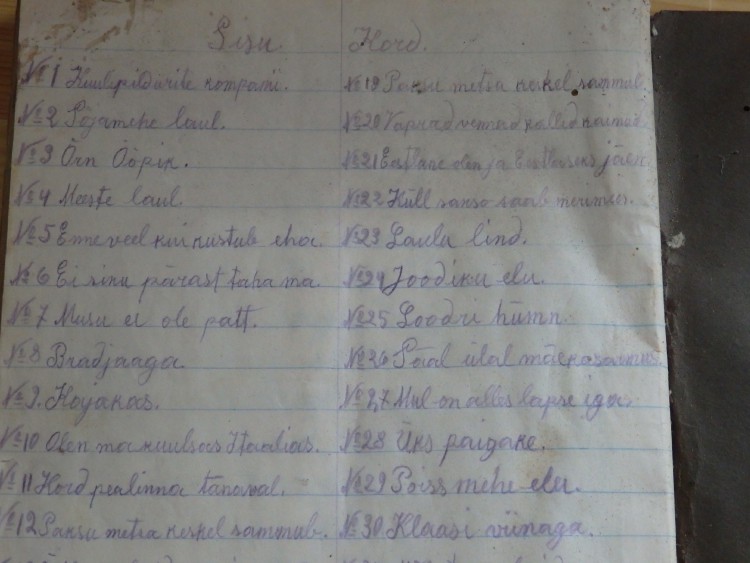 Sisu Kord.
№1 Kuulipildurite kompami.
№2 Sõjamehe laul.
№3 Õrn Ööpik.
№4 Meeste laul.
№5 Enne veel kui kustub eha.
№6 Ei sinu pärast taha ma.
№7 Musu ei ole patt.
№8 Bradjaaga.
№9. Kojakas.
№10 Olen ma kuulsas Itaalias.
№11 Kord pealinna tänaval.
№12 Paksu metsa keskel sammub.
№19 Paksu metsa keskel sammub.
№20 Vaprad vennad kallid
№21 Eestlane olen ja Eestlaseks jään.
№22 Küll sakso saab
№23 Laula lind.
№24 Joodiku elu.
№25 Loodri hümn.
№26 Sääl ülal
№27 Mul on alles lapse iga
№28 Üks paigake.
№29 Poiss mehe elu.
№30. Klaasi viinaga.